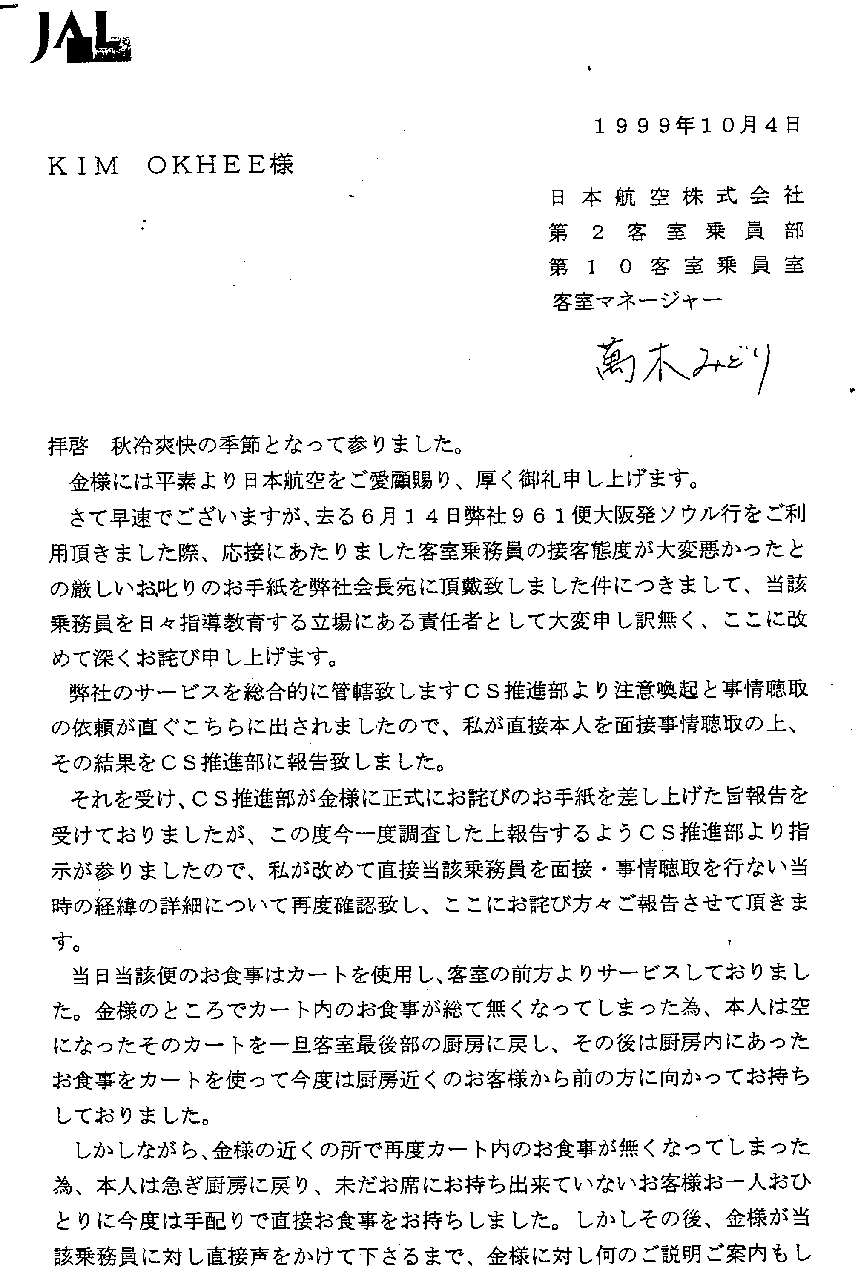 JAL
1999年10月4日
KIM OKHEE様
日本航空株式会社
第2客室乗員部
第10客室乗員室
客室マネージャー
萬木みどり
拝啓 秋冷爽快の季節となって参りました。
金様には平素より日本航空をご愛顧賜り、厚く御礼申し上げます。
さて早速でございますが、去る6月14日弊社961便大阪発ソウル行をご利
用頂きました際、応接にあたりました客室乗務員の接客態度が大変悪かったと
の厳しいお叱りのお手紙を弊社会長宛に頂戴致しました件につきまして、当該
乗務員を日々指導教育する立場にある責任者として大変申し訳無く、ここに改
めて深くお詫び申し上げます。
弊社のサービスを総合的に管轄致しますCS推進部より注意喚起と事情聴取
の依頼が直ぐこちらに出されましたので、私が直接本人を面接事情聴取の上、
その結果をCS推進部に報告致しました。
それを受け、CS推進部が金様に正式にお詫びのお手紙を差し上げた旨報告を
受けておりましたが、この度今一度調査した上報告するようCS推進部より指
示が参りましたので、私が改めて直接当該乗務員を面接・事情聴取を行ない当
時の経緯の詳細について再度確認致し、ここにお詫び方々ご報告させて頂きま
す。
当日当該便のお食事はカートを使用し、客室の前方よりサービスしておりまし
た。金様のところでカート内のお食事が総て無くなってしまった為、本人は空
になったそのカートを一旦客室最後部の厨房に戻し、その後は厨房内にあった
お食事をカートを使って今度は厨房近くのお客様から前の方に向かってお持ち
しておりました。
しかしながら、金様の近くの所で再度カート内のお食事が無くなってしまった
為、本人は急ぎ厨房に戻り、未だお席にお持ち出来ていないお客様お一人おひ
とりに今度は手配りで直接お食事をお持ちしました。しかしその後、金様が当
該乗務員に対し直接声をかけて下さるまで、金様に対し何のご説明ご案内もし